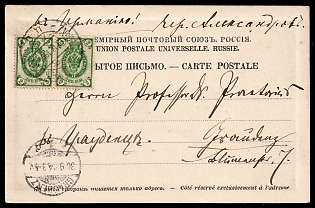 въ Германію! чер. Александрово
ВСЕМІРНЫЙ ПОЧТОВЫЙ СОЮЗЪ. РОССІЯ.
UNION POSTALE UNIVERSELLE. RUSSIE.
ОТКРЫТОЕ ПИСЬМО. — CARTE POSTALE
Herrn Professor Praetorius
въ Грауденцъ Graudenz
7.
На этой сторонѣ пишется только адресъ. — Côté réservé exclusivement à l'adresse.